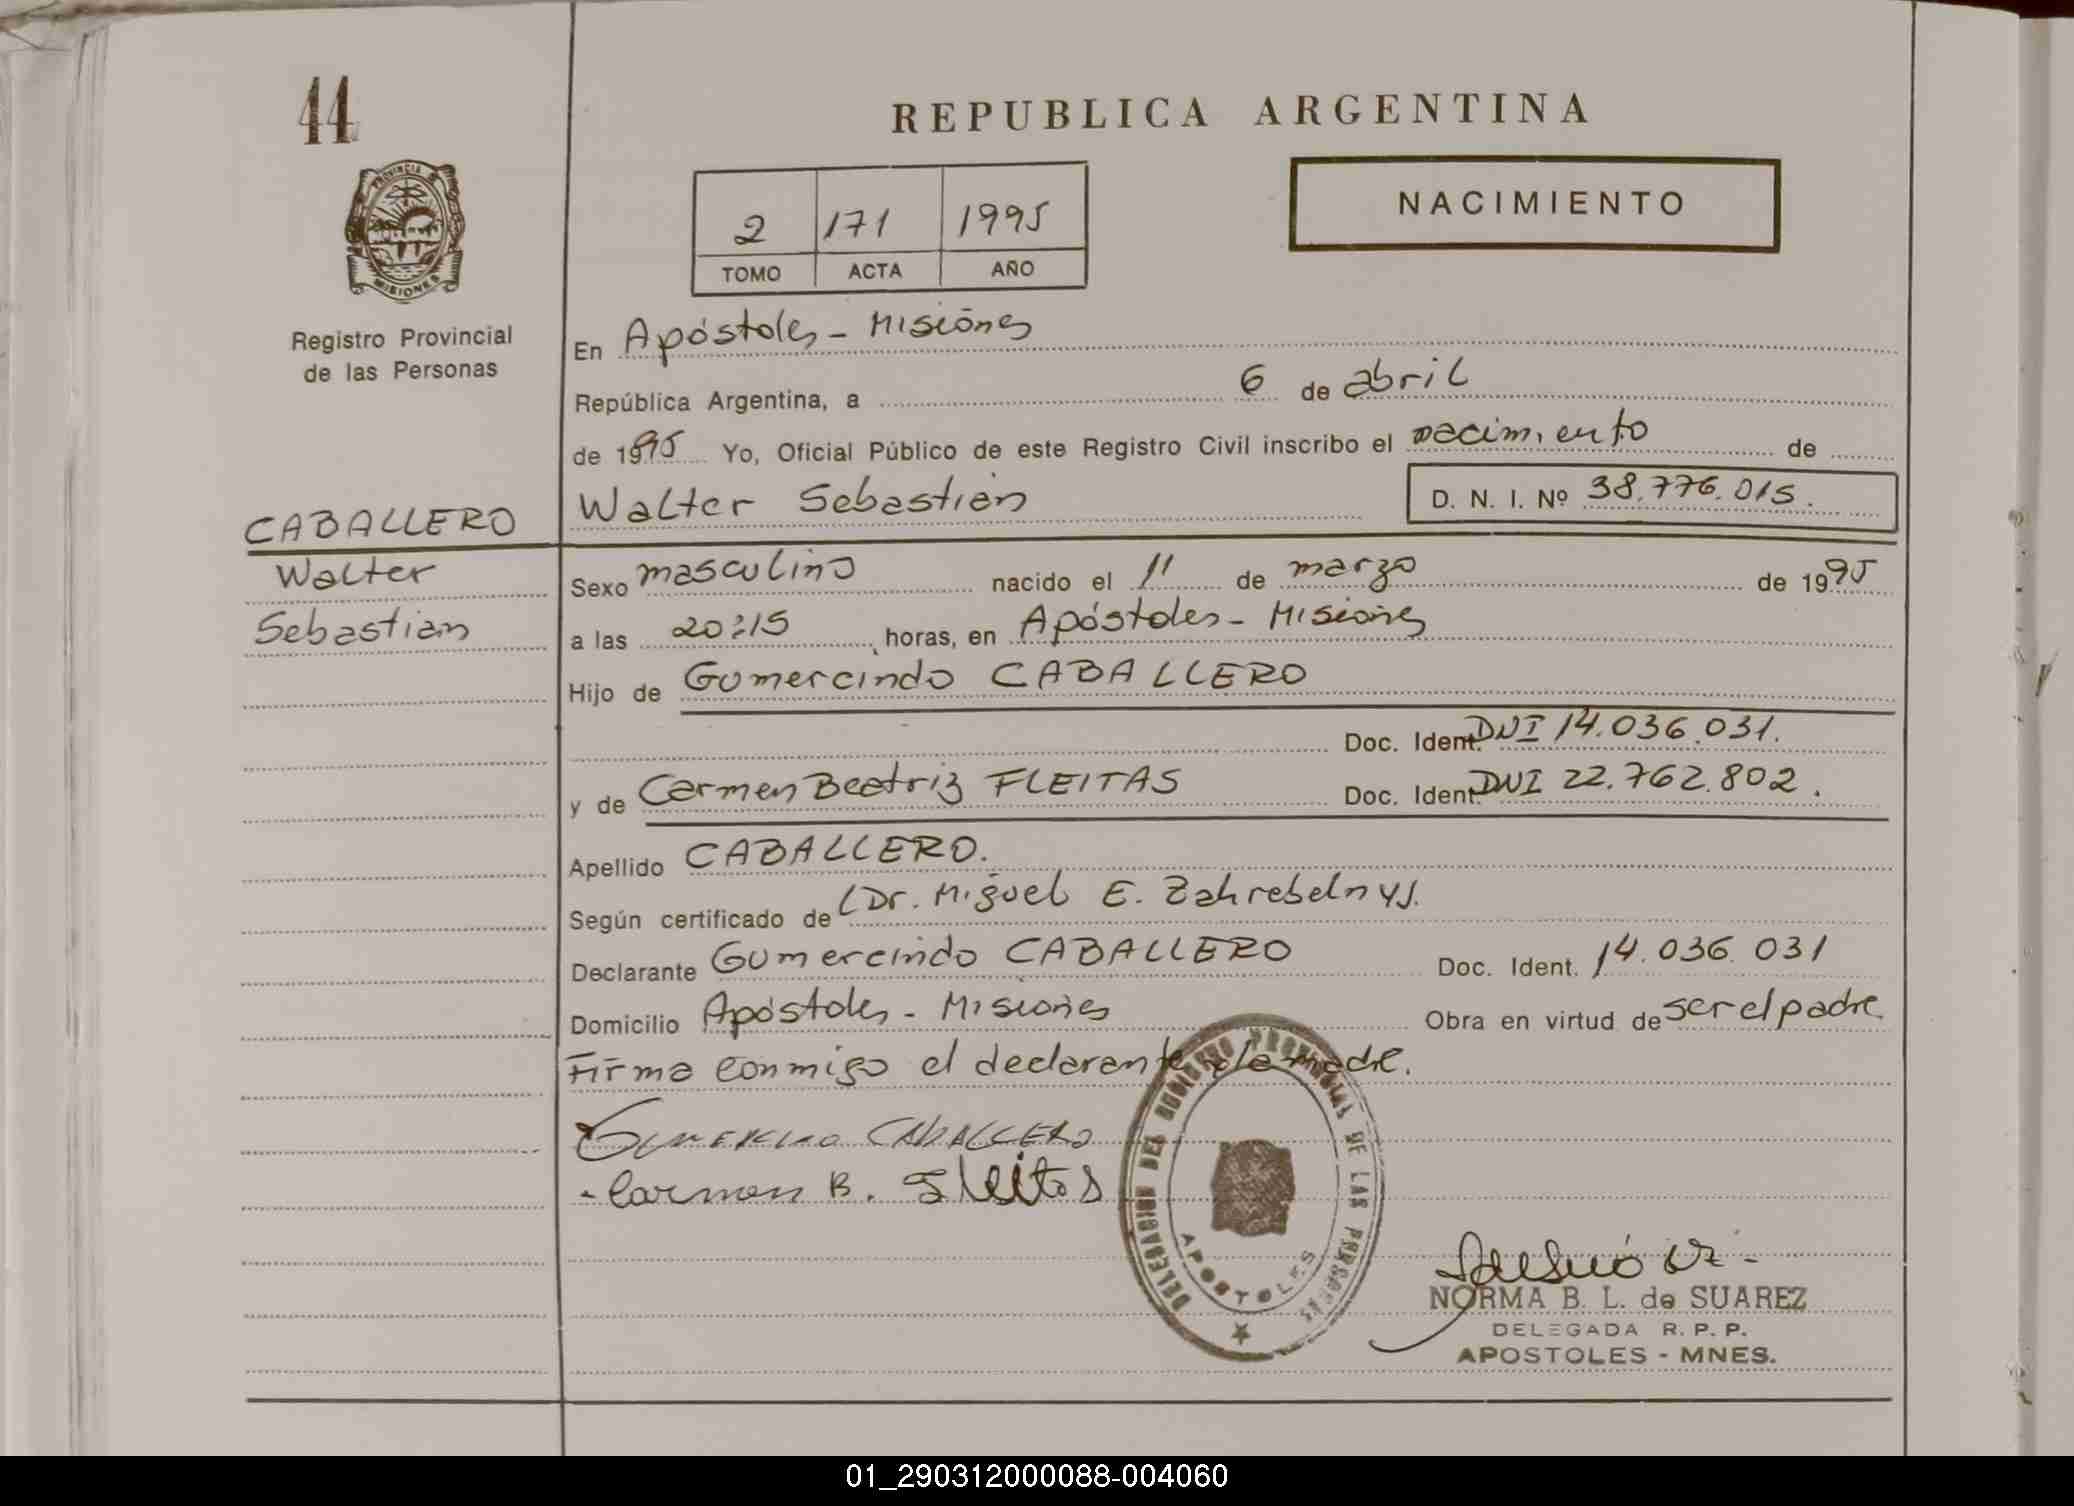 44
REPUBLICA ARGENTINA
PROVINCIA DE MISIONES
NACIMIENTO
2 171 1995
TOMO ACTA AÑO
Registro Provincial
de las Personas
En Apóstoles - Misiones
República Argentina, a 6 de abril
de 1995 Yo, Oficial Público de este Registro Civil inscribo el nacimiento de
CABALLERO
Walter Sebastián D. N. I. Nº 38.776.015.
Walter
Sexo masculino nacido el 11 de marzo de 1995
Sebastian
a las 20:15 horas, en Apóstoles - Misiones
Hijo de Gumercindo CABALLERO
Doc. Ident. DNI 14.036.031.
y de Carmen Beatriz FLEITAS Doc. Ident. DNI 22.762.802.
Apellido CABALLERO.
Según certificado de (Dr. Miguel E. Zahrebelnys).
Declarante Gumercindo CABALLERO Doc. Ident. 14.036.031
Domicilio Apóstoles - Misiones Obra en virtud de ser el padre
Firma conmigo el declarante y la madre.
Gumercindo CABALLERO
Carmen B. Fleitas
DELEGACION DEL REGISTRO PROVINCIAL DE LAS PERSONAS
APOSTOLES
NORMA B. L. de SUAREZ
DELEGADA R. P. P.
APOSTOLES - MNES.
01_290312000088-004060